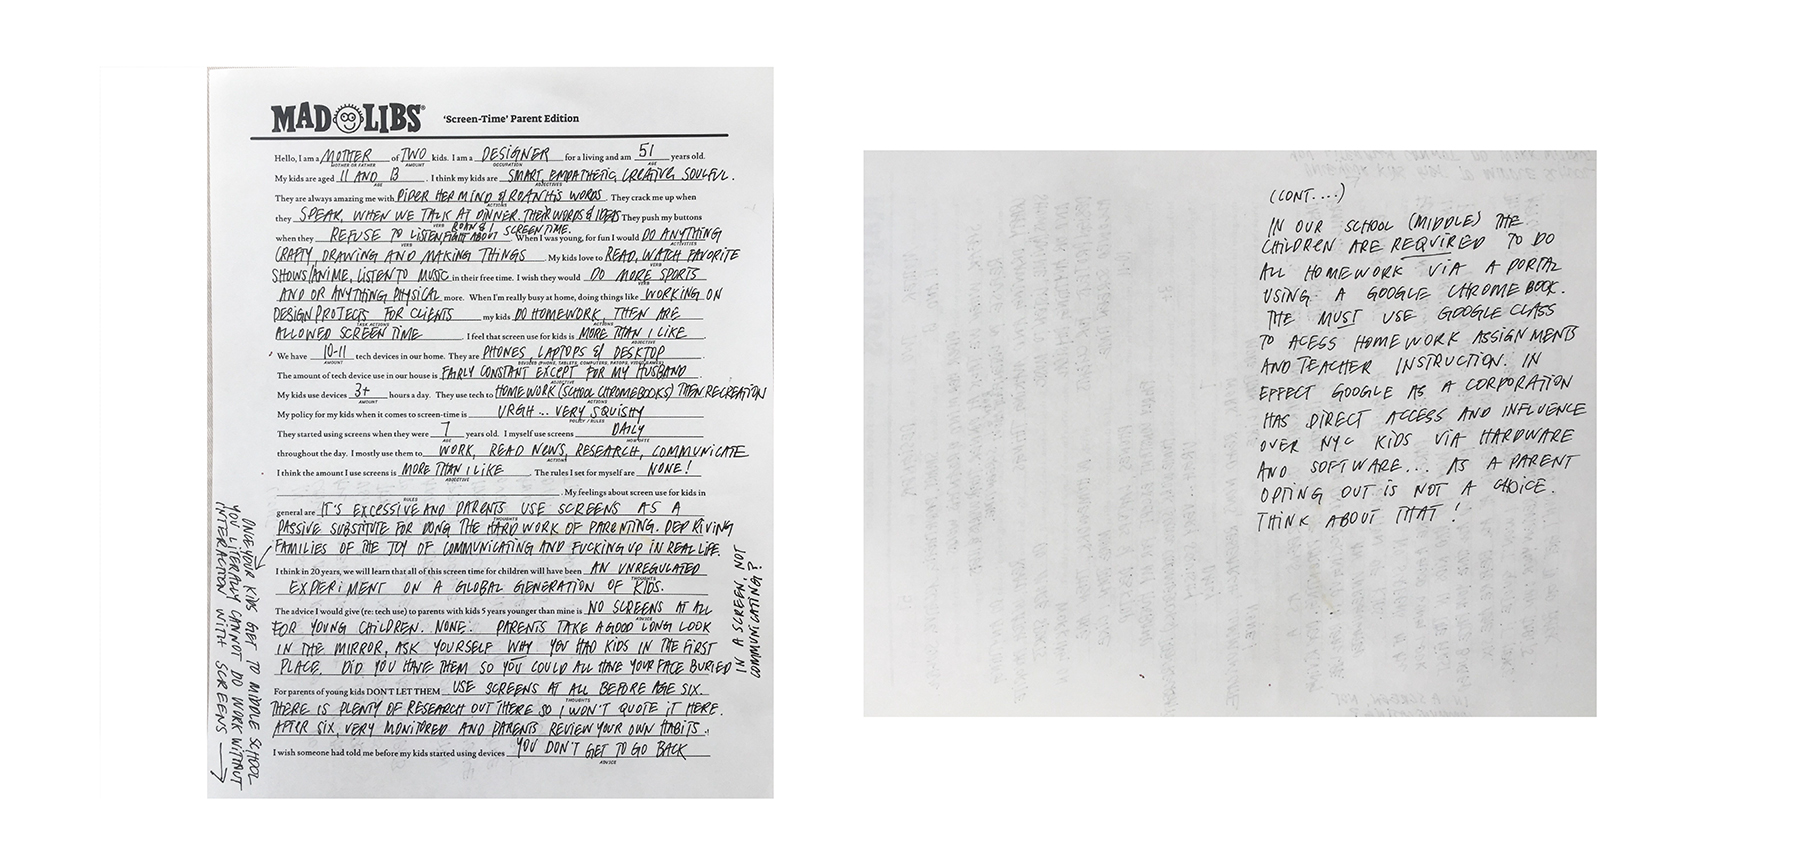 MAD LIBS® 'Screen-Time' Parent Edition
Hello, I am a MOTHER of TWO kids. I am a DESIGNER for a living and am 51 years old.
MOTHER OR FATHER AMOUNT OCCUPATION AGE
My kids are aged 11 AND 13. I think my kids are SMART, EMPATHETIC, CREATIVE SOULFUL.
AGE ADJECTIVES
They are always amazing me with PIPER HER MIND & ROAN HIS WORDS. They crack me up when
ACTIONS
they SPEAK WHEN WE TALK AT DINNER. THEIR WORDS & IDEAS They push my buttons
VERB ROAN & I
when they REFUSE TO LISTEN, FIGHT ABOUT SCREEN TIME. When I was young, for fun I would DO ANYTHING
VERB ACTIVITIES
CRAFTY, DRAWING AND MAKING THINGS My kids love to READ, WATCH FAVORITE
VERB
SHOWS/ANIME, LISTEN TO MUSIC in their free time. I wish they would DO MORE SPORTS
VERB
AND OR ANYTHING PHYSICAL more. When I'm really busy at home, doing things like WORKING ON
DESIGN PROJECTS FOR CLIENTS my kids DO HOMEWORK, THEN ARE
TASK ACTIONS ACTIONS
ALLOWED SCREEN TIME I feel that screen use for kids is MORE THAN I LIKE.
ADJECTIVE
We have 10-11 tech devices in our home. They are PHONES, LAPTOPS & DESKTOP.
AMOUNT
The amount of tech device use in our house is FAIRLY CONSTANT EXCEPT FOR MY HUSBAND
ADJECTIVE
My kids use devices 3+ hours a day. They use tech to HOMEWORK (SCHOOL CHROMEBOOKS) THEN RECREATION
AMOUNT ACTIONS
My policy for my kids when it comes to screen-time is URGH... VERY SQUISHY
POLICY / RULES
They started using screens when they were 7 years old. I myself use screens DAILY
AGE HOW OFTE
throughout the day. I mostly use them to WORK, READ NEWS, RESEARCH, COMMUNICATE
ACTIONS
I think the amount I use screens is MORE THAN I LIKE The rules I set for myself are NONE!
ADJECTIVE
. My feelings about screen use for kids in
RULES
general are IT'S EXCESSIVE AND PARENTS USE SCREENS AS A
THOUGHTS
PASSIVE SUBSTITUTE FOR DOING THE HARD WORK OF PARENTING. DEPRIVING
FAMILIES OF THE JOY OF COMMUNICATING AND FUCKING UP IN REAL LIFE.
I think in 20 years, we will learn that all of this screen time for children will have been AN UNREGULATED
THOUGHTS
EXPERIMENT ON A GLOBAL GENERATION OF KIDS.
The advice I would give (re: tech use) to parents with kids 5 years younger than mine is NO SCREENS AT ALL
ADVICE
FOR YOUNG CHILDREN. NONE. PARENTS TAKE A GOOD LONG LOOK
IN THE MIRROR, ASK YOURSELF WHY YOU HAD KIDS IN THE FIRST
PLACE. DID YOU HAVE THEM SO YOU COULD ALL HAVE YOUR FACE BURIED
IN A SCREEN, NOT
COMMUNICATING?
For parents of young kids DON'T LET THEM USE SCREENS AT ALL BEFORE AGE SIX.
THOUGHTS
THERE IS PLENTY OF RESEARCH OUT THERE SO I WON'T QUOTE IT HERE.
AFTER SIX, VERY MONITORED AND PARENTS REVIEW YOUR OWN HABITS.
I wish someone had told me before my kids started using devices YOU DON'T GET TO GO BACK
ADVICE
ONCE YOUR KIDS GET TO MIDDLE SCHOOL
YOU LITERALLY CANNOT DO WORK WITHOUT
INTERACTION WITH SCREENS
(CONT....)
IN OUR SCHOOL (MIDDLE) THE
CHILDREN ARE REQUIRED TO DO
ALL HOMEWORK VIA A PORTAL
USING A GOOGLE CHROMEBOOK.
THE MUST USE GOOGLE CLASS
TO ACESS HOMEWORK ASSIGNMENTS
AND TEACHER INSTRUCTION. IN
EFFECT GOOGLE AS A CORPORATION
HAS DIRECT ACCESS AND INFLUENCE
OVER NYC KIDS VIA HARDWARE
AND SOFTWARE... AS A PARENT
OPTING OUT IS NOT A CHOICE.
THINK ABOUT THAT!